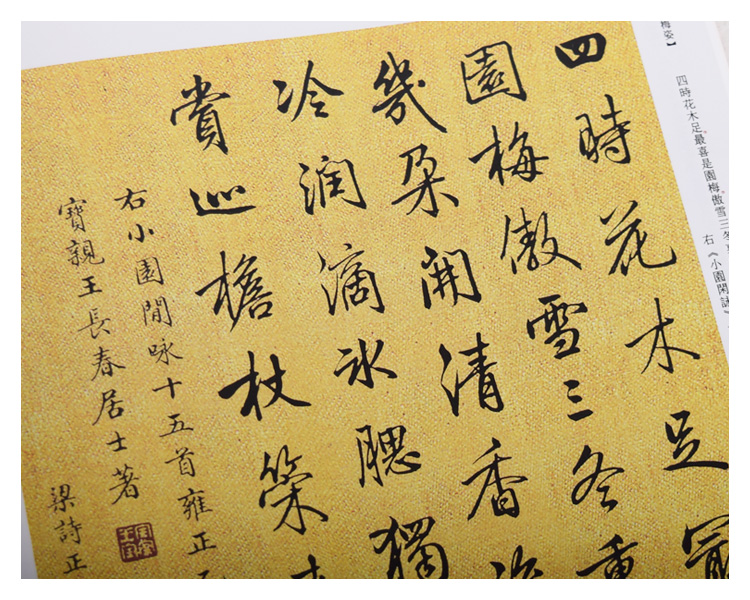 梅姿】
四時花木足。最喜是園梅。傲雪三冬
右《小園閑詠》
四時花木足最
園梅傲雪三冬重
幾朵開清香
冷潤滴氷腮獨
賞巡檐杖策
右小園閒咏十五首雍正
寶親王長春居士著
梁詩正